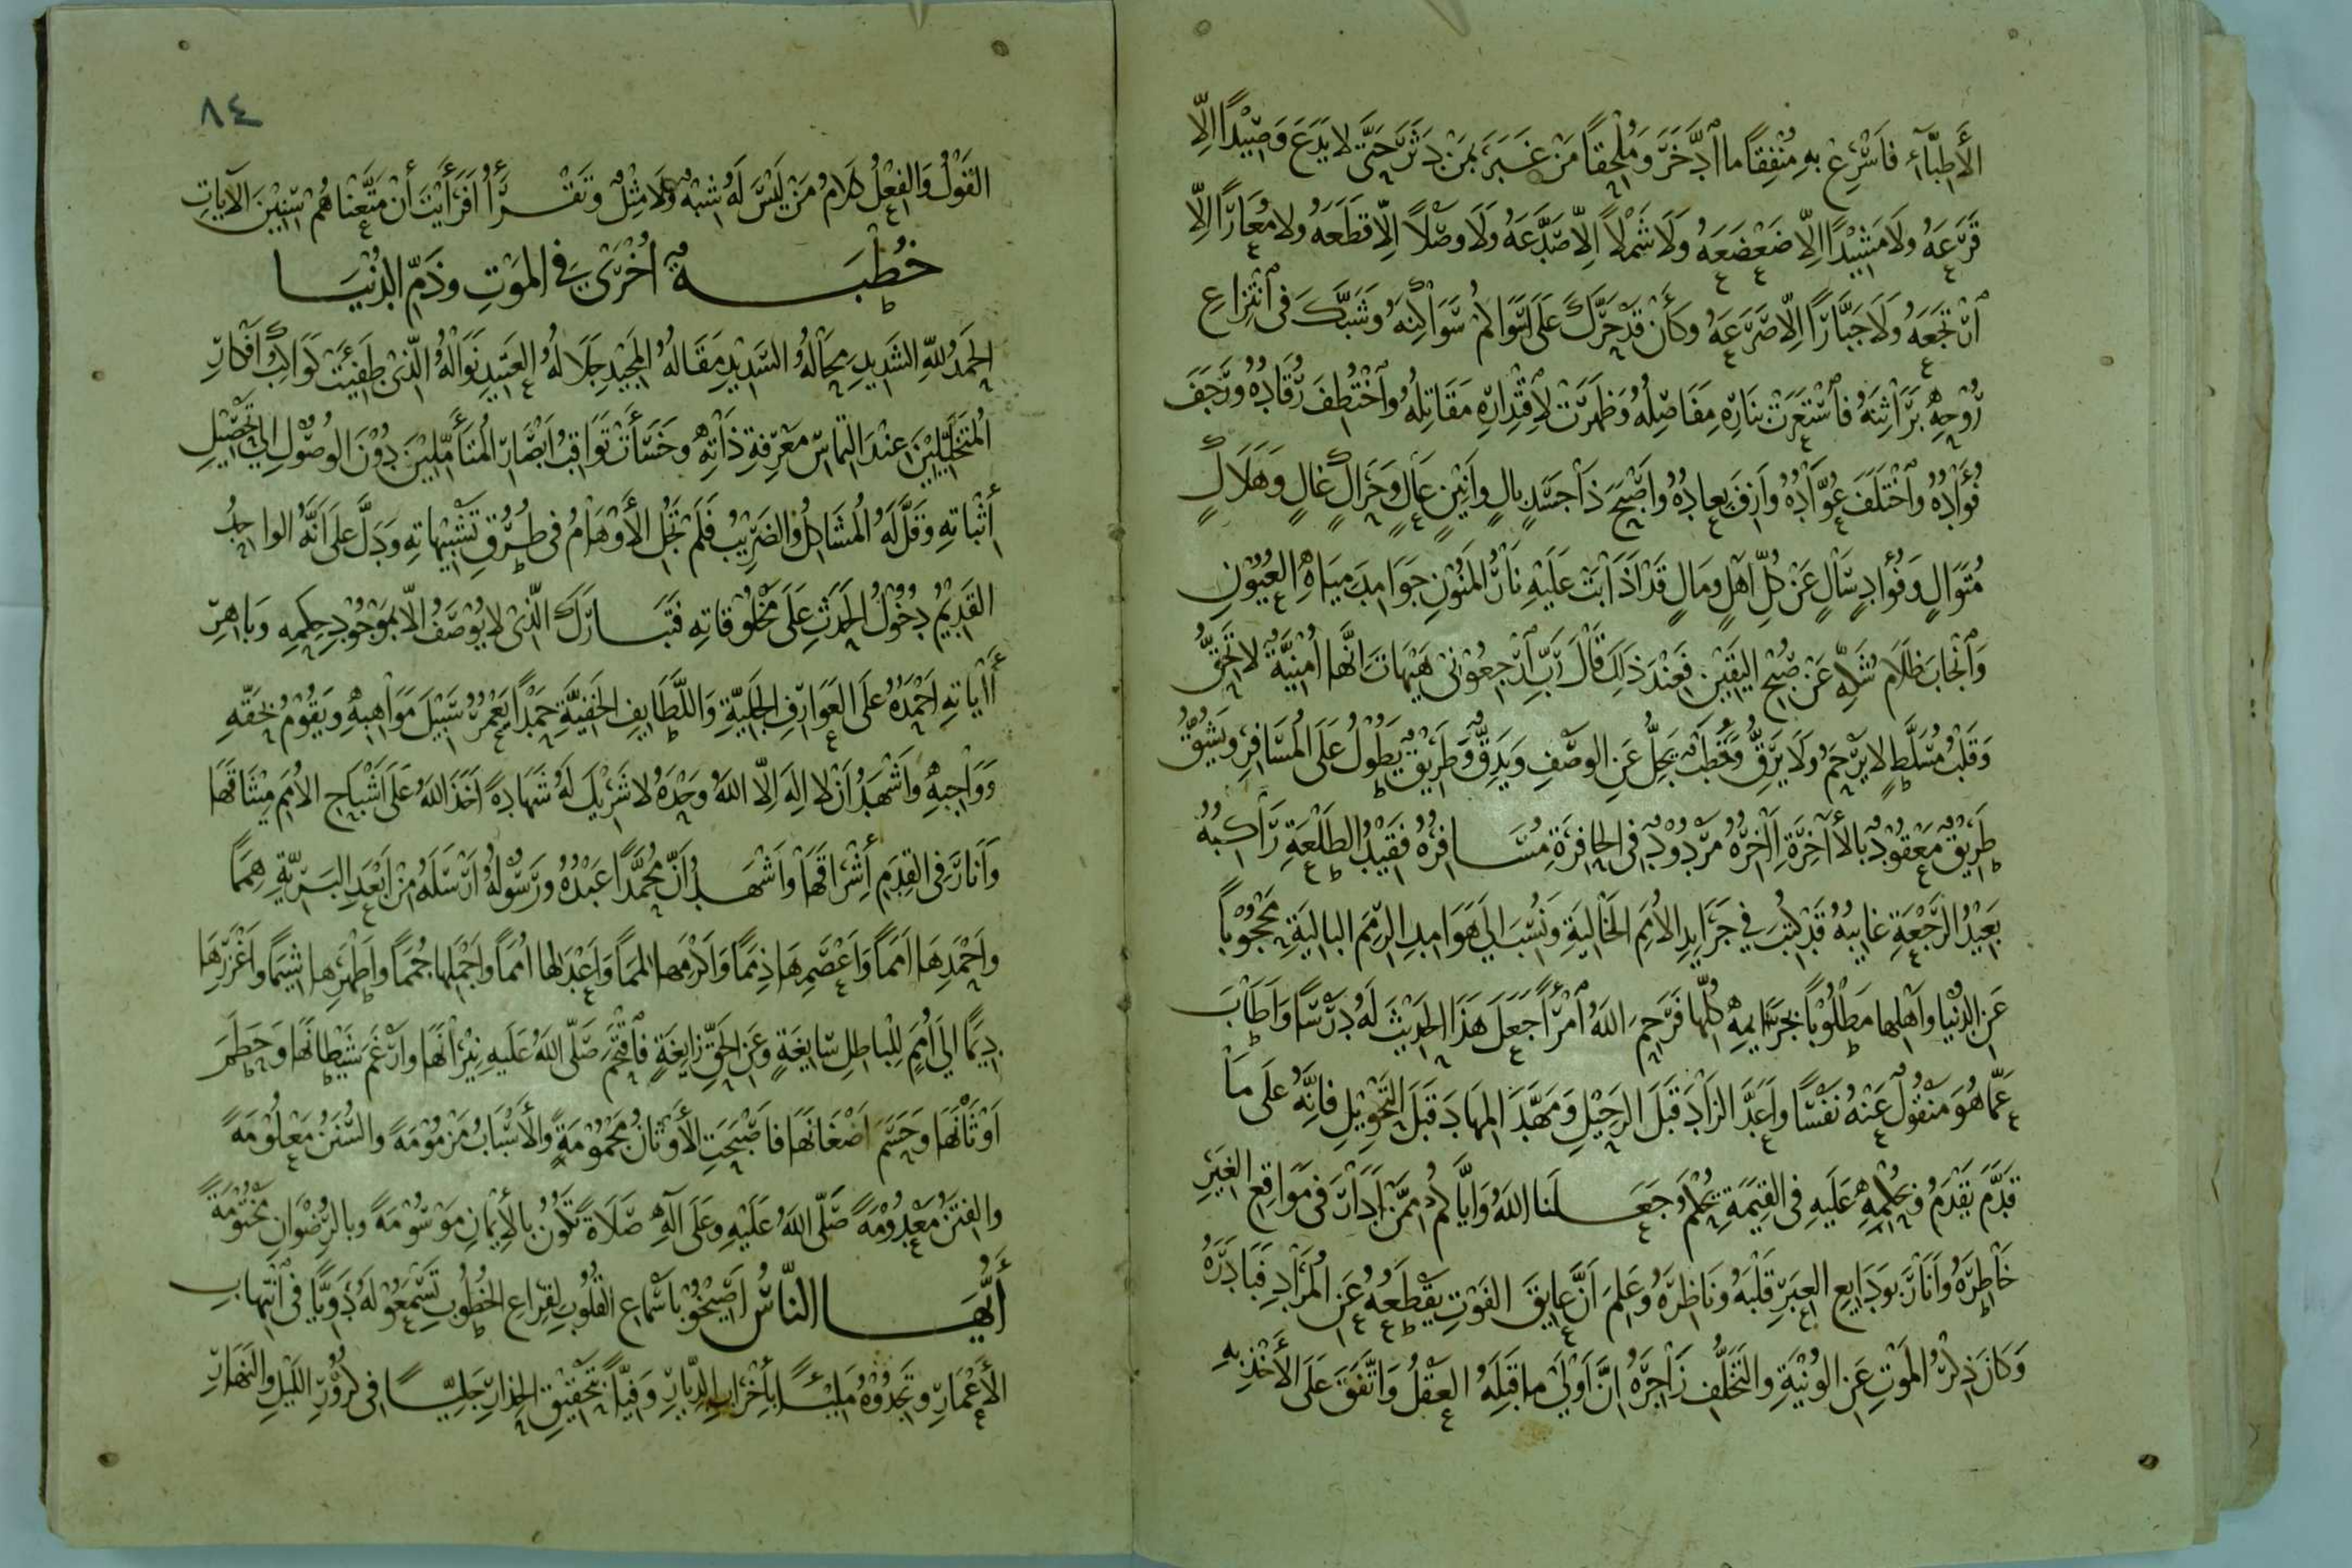 الأَطِبَّآءِ فَاَسْرِعْ بِهِ مُنْفِقًا ما ٱدَّخَرَ وَمُلْحِقًا مَنْ غَبَرَ بِمَنْ دَثَرَ حَتَّى لا يَدَعَ وَصِيْدًا اِلّا
قَرَعَهُ ولَا مَشِيْدًا اِلّا ضَعْضَعَهُ وَلَا شَمْلاً اِلّا صَدَّعَهُ وَلَا وصْلاً اِلّا قَطَعَهُ ولا مُعَارًا اِلّا
ٱرْتَجَعَهُ وَلَا جَبَّارًا اِلّا صَرَعَهُ وكَأَنْ قَدْ حَرَّكَ عَلَى اَسْوَالِكُمْ سَوَاكِنَهُ وَشَبَّكَ فى ٱنْتِزاعِ
رُوْحِهِ بَرَاثِنَهُ فَٱسْتَعَرَتْ بِنَارِهِ مَفَاصِلُهُ وَظَهَرَتْ لِاقْتِدَارِهِ مَقَاتِلُهُ وٱخْتُطِفَ رُقَادُهُ وَرَجَفَ
فُؤَادُهُ وٱخْتَلَفَ عُوَّادُهُ وَازِفَ بِعَادُهُ وَاَصْبَحَ ذَا جَسَدٍ بالٍ واَنِيْنٍ عَالٍ وَحَرَاكٍ غالٍ وَهَلَاكٍ
مُتَوَالٍ وَفُؤَادٍ سَالٍ عَنْ كُلِّ اَهْلٍ ومَالٍ قَدْ اَذَابَتْ عَلَيْهِ نَارُ المَنُوْنِ جَوَامِدَ مِيَاهِ العُيُوْنِ
وَٱنْجَابَ ظَلَامُ شَكِّهِ عَنْ صُبْحِ اليَقِيْنِ فَعِنْدَ ذَلِكَ قَالَ رَبِّ ٱرْجِعُوْنِى هَيْهَاتَ اِنَّها اُمْنِيَّةٌ لا تَحِقُّ
وَقَلْبُ مُسَلَّطٍ لا يَرْحَمُ وَلَا يَرِقُّ وَخَطْبٌ يَجِلُّ عَنِ الوَصْفِ وَيَدِقُّ وَطَرِيْقٌ يَطُوْلُ عَلَى المُسَافِرِ ويَشُقُّ
طَرِيْقٌ مَعْقُوْدٌ بِالأَاخِرَةِ اٰخِرُهُ مَرْدُوْدٌ فى الحَافِرَةِ مُسَافِرُهُ فَقِيْدُ الطَّلْعَةِ رَاكِبُهُ
بَعِيْدُ الرَّجْعَةِ غَايِبُهُ قَدْ كُتِبَ فِي جَرَايِدِ الأُمَمِ الخَالِيَةِ وَنُسِبَ اِلَى هَوَامِدِ الرِّمَمِ البَالِيَةِ مَحْجُوْبًا
عَنِ الدُّنْيا واَهْلِها مَطْلُوْبًا بِجَرَايمِهِ كُلِّها فَرَحِمَ اللهُ ٱمْرَأً جَعَلَ هَذَا الحَدِيْثَ لَهُ دَرْسًا وَاَطَابَ
عَمَّا هُوَ مَنْقُوْلٌ عَنْهُ نَفْسًا واَعَدَّ الزَّادَ قَبْلَ الرَحِيْلِ وَمَهَّدَ المِهَادَ قَبْلَ التَّحْوِيْلِ فَاِنَّهُ عَلَى مَا
قَدَّمَ يَقْدَمُ وَبِحُكْمِهِ عَلَيْهِ فى القِيٰمَةِ يُحْكَمُ وَجَعَلَنا اللهُ وَاِيَّاكُمْ مِمَّنْ اَدَارَ فى مَوَاقِعِ الغِيَرِ
خَاطِرَهُ وَاَنَارَ بِوَدَايِعِ العِبَرِ قَلْبَهُ وَنَاظِرَهُ وَعَلِمَ اَنَّ عَايِقَ الفَوْتِ يَقْطَعُهُ عَنِ المُرَادِ فَبَادَرَهُ
وَكَانَ ذِكْرُ المَوْتِ عَنِ الوُنْيَةِ والتَّخَلُّفِ زَاجِرَهُ اِنَّ اَوْلَى ما قَبِلَهُ العَقْلُ وَاتَّفَقَ عَلَى الأَخْذِ بِهِ
٨٤
القَوْلُ وَالفِعْلُ كَلَامُ مَنْ لَيْسَ لَهُ شِبْهٌ وَلَا مِثْلٌ وتَقْرَأُ أَفَرَأَيْتَ أَنْ مَتَّعْنَاهُمْ سِنِيْنَ الآيَاتِ
خُطْبَةٌ اُخْرَى فِي المَوْتِ وذَمِّ الدُنْيَا
الحَمْدُ للهِ الشَدِيدِ مِحَالُهُ السَّدِيْدِ مَقَالُهُ المَجِيْدِ جَلَالُهُ العَتِيدِ نَوَالُهُ الَّذِىْ طَفِئَتْ كَوَاكِبُ اَفْكَارِ
المُتَخَيِّلِيْنَ عِنْدَ التِمَاسِ مَعْرِفَةِ ذَاتِهِ وخَسَأَتْ ثَوَاقِبُ اَبْصَارِ المُتَأَمِّلِيْنَ دُوْنَ الوُصُوْلِ اِلى تَحْصِيْلِ
أِثْبَاتِهِ وَقَلَّ لَهُ المُشَاكِلُ والضَرِيْبُ فَلَمْ تَجُلِ الأَوْهَامُ فى طُرُقِ تَشْبِيْهاتِهِ ودَلَّ عَلَى اَنَّهُ الواجِبُ
القَدِيْمُ دُخُوْلُ الحَدَثِ عَلَى مَخْلُوْقَاتِهِ فَتَبَارَكَ الَّذِى لا يُوْصَفُ اِلّا بِمَوْجُوْدِ حِكَمِهِ وَبَاهِرِ
أاٰيَاتِهِ اَحْمَدُهُ عَلَى العَوَارِفِ الجَلِيَّةِ وَاللَّطَايِفِ الخَفِيَّةِ حَمْدًا يَعْمُرُ سَبِيْلَ مَوَاهِبِهِ ويَقُوْمُ بِحَقِّهِ
وَوَاجِبِهِ واَشْهَدُ اَنْ لا اِلهَ اِلّا اللهُ وَحْدَهُ لا شَرِيْكَ لَهُ شَهَادَةً اَخَذَ اللهُ عَلَى اَشْبَاحِ الأُمَمِ مِيْثَاقَهَا
وَاَنَارَ فى القِدَمِ أِشْرَاقَهَا وَاَشْهَدُ اَنَّ مُحَمَّدًا عَبْدُهُ وَرَسُوْلُهُ اَرْسَلَهُ مِنْ اَبْعَدِ البَرِيَّةِ هِمَمًا
واَحْمَدِهَا اَمَمًا وَاَعْصَمِهَا ذِمَمًا وَاَكْرَمِهَا لِمَمًا وَاَعْدَلِها اُمَمًا واَجْمَلِها جُمَمًا واَطْهَرِها شِيَمًا واَغْزَرِهَا
دِيَمًا اِلى اُمَمٍ لِلْباطِلِ سَايغَةٍ وعَنِ الحَقِّ زَايِغَةٍ فَٱقْتَحَمَ صَلَّى اللهُ عَلَيهِ نِيْرَانَهَا واَرْغَمَ شَيْطَانَهَا وَحَطَمَ
اَوْثَانَهَا وحَسَمَ اَضْغَانَهَا فَاَصْبَحَتِ الأَوْثَانُ مَحْمُوْمَةً والأَسْبَابُ مَزْمُوْمَةً والسُّنَنُ مَعْلُوْمَةً
والفِتَنُ مَعْدُوْمَةً صَلَّى اللهُ عَلَيْهِ وعَلَى آلِهِ صَلَاةً تَكُوْنُ بِالأِيْمَانِ مَوْسُوْمَةً وبِالرِّضْوَانِ مَخْتُوْمَةً
أَيُّهَا النَّاسُ اَصِيْخُوْا بِاَسْمَاعِ القُلُوْبِ لِقِرَاعِ الخُطُوْبِ تَسْمَعُوْا لَهُ دَوِيًّا فى ٱنْتِهَابِ
الأَعْمَارِ وتَجِدُوْهُ مَلِيْئًا بِأَخْرَابِ الدِّيَارِ وَفِيًّا بِتَحْقِيْقِ الحِذَارِ جَلِيًّا فى كُرُوْرِ اللَيْلِ والنَهَارِ